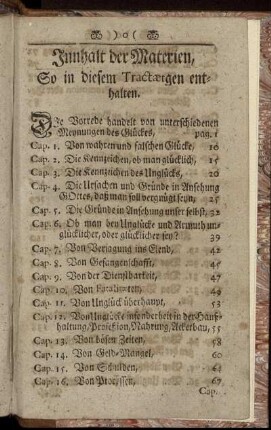 )o(
Jnnhalt der Materien,
So in diesem Tractætgen ent-
halten.
Die Vorrede handelt von unterschiedenen
Meynungen des Glückes, pag. 1
Cap. 1. Von wahren und falschen Glücke, 10
Cap. 2. Die Kennzeichen, ob man glücklich, 15
Cap. 3. Die Kennzeichen des Unglücks, 20
Cap. 4. Die Ursachen und Gründe in Ansehung
GOttes, daß man soll vergnügt seyn, 25
Cap. 5. Die Gründe in Ansehung unser selbst, 32
Cap. 6. Ob man bey Unglück und Armuth un-
glücklicher, oder glücklicher sey? 39
Cap. 7. Von Verjagung ins Elend, 42
Cap. 8. Von Gefangenschafft, 45
Cap. 9. Von der Dienstbarkeit, 47
Cap. 10. Von 49
Cap. 11. Von Unglück überhaupt, 53
Cap. 12. Von Unglücke insonderheit in der Hauß-
haltung, Profession, Nahrung, Ackerbau, 55
Cap. 13. Von bösen Zeiten, 58
Cap. 14. Von Geld-Mangel, 60
Cap. 15. Von Schulden, 61
Cap. 16. Von Processen, 67
Cap.